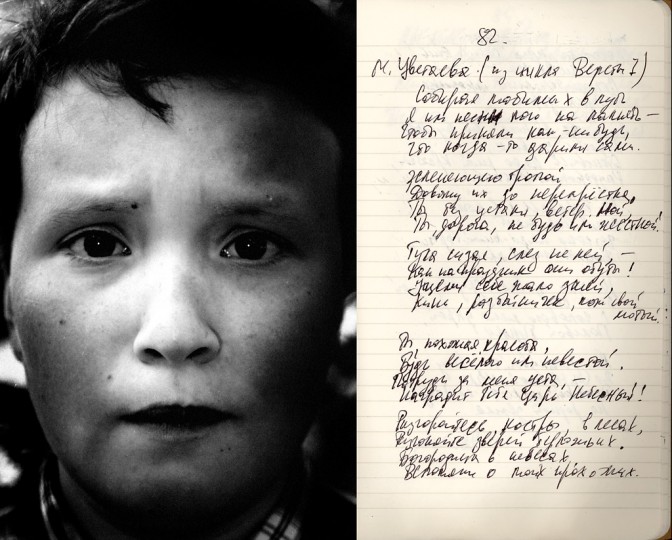 82.
М. Цветаева (из цикла Версты I)
Собирая любимых в путь
Я им песни пою на память —
Чтобы приняли как-нибудь,
Что когда-то дарили сами.
Зеленеющею тропой
Довожу их до перекрёстка,
Ты без устали, ветер, пой,
Ты, дорога, не будь им жесткой!
Туча сизая, слёз не лей, —
Как на праздник они обуты!
Ущеми себе жало змей,
Кинь, разбойничек, нож свой
лютый.
Ты, прохожая красота,
Будь весёлою им невестой.
Потруди за меня уста, —
Наградит тебя Царь Небесный!
Разгорайтесь, костры, в лесах,
Разгоняйте зверей берложьих.
Богородица в небесах,
Вспомяни о моих прохожих.